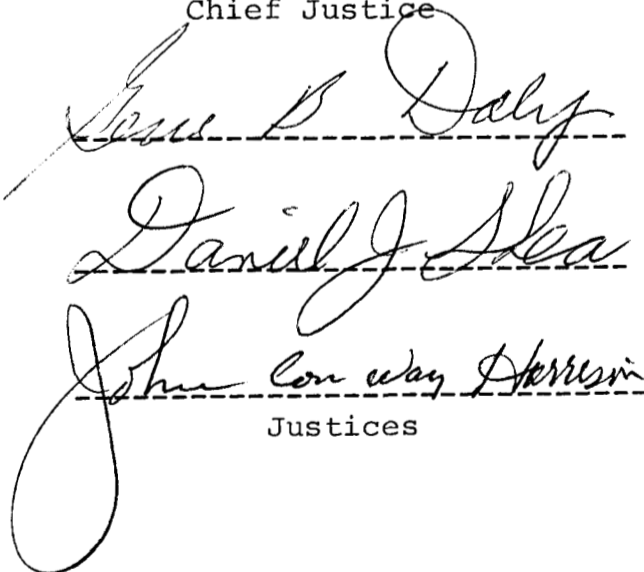 Chief Justice
Gene B Daly
Daniel J Shea
John Conway Harrison
Justices